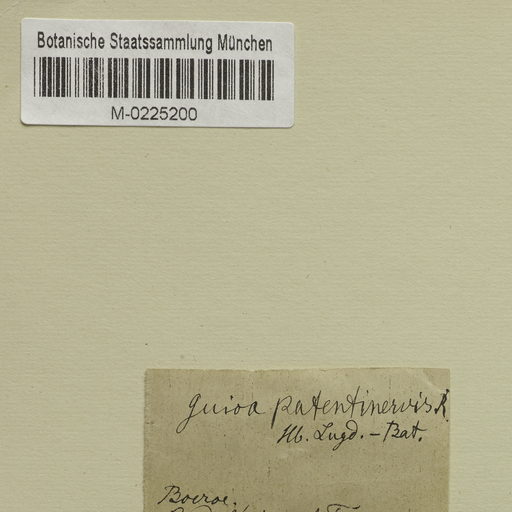 Botanische Staatssammlung München
M-0225200
Guioa patentinervis R.
Hb. Lugd. - Bat.
Boeroe.